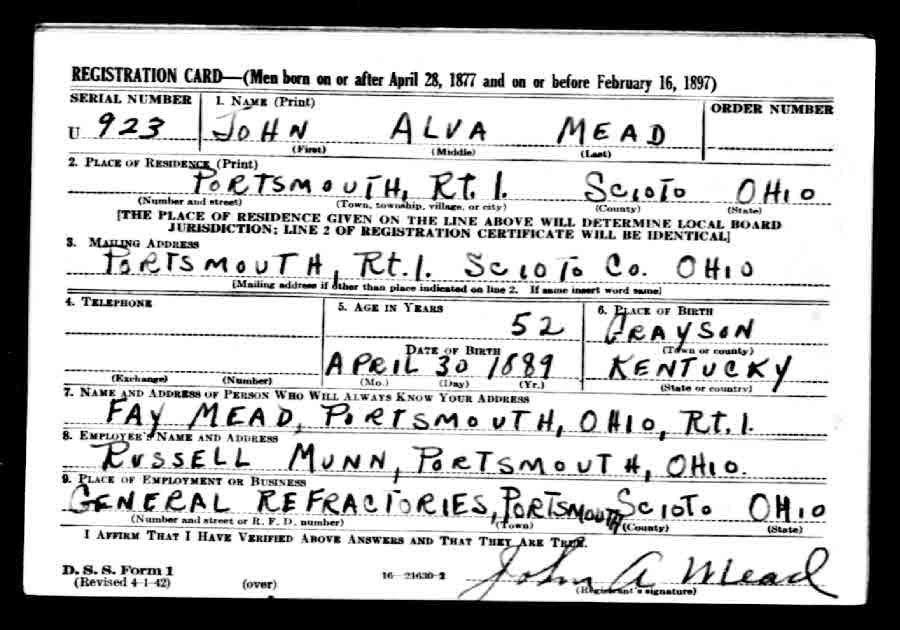 REGISTRATION CARD—(Men born on or after April 28, 1877 and on or before February 16, 1897)
SERIAL NUMBER 1. NAME (Print) ORDER NUMBER
U 923 JOHN ALVA MEAD
(First) (Middle) (Last)
2. PLACE OF RESIDENCE (Print)
PORTSMOUTH, RT. 1. SCIOTO OHIO
(Number and street) (Town, township, village, or city) (County) (State)
[THE PLACE OF RESIDENCE GIVEN ON THE LINE ABOVE WILL DETERMINE LOCAL BOARD
JURISDICTION; LINE 2 OF REGISTRATION CERTIFICATE WILL BE IDENTICAL]
3. MAILING ADDRESS
PORTSMOUTH, Rt. 1. SCIOTO CO. OHIO
[Mailing address if other than place indicated on line 2. If same insert word same]
4. TELEPHONE 5. AGE IN YEARS 6. PLACE OF BIRTH
52 GRAYSON
DATE OF BIRTH (Town or county)
APRIL 30 1889 KENTUCKY
(Exchange) (Number) (Mo.) (Day) (Yr.) (State or country)
7. NAME AND ADDRESS OF PERSON WHO WILL ALWAYS KNOW YOUR ADDRESS
FAY MEAD, PORTSMOUTH, OHIO, RT. 1.
8. EMPLOYER'S NAME AND ADDRESS
RUSSELL MUNN, PORTSMOUTH, OHIO.
9. PLACE OF EMPLOYMENT OR BUSINESS
GENERAL REFRACTORIES, PORTSMOUTH SCIOTO OHIO
(Number and street or R. F. D. number) (Town) (County) (State)
I AFFIRM THAT I HAVE VERIFIED ABOVE ANSWERS AND THAT THEY ARE TRUE.
D. S. S. Form 1
(Revised 4-1-42) (over) 16—21630-2 John A Mead
(Registrant's signature)